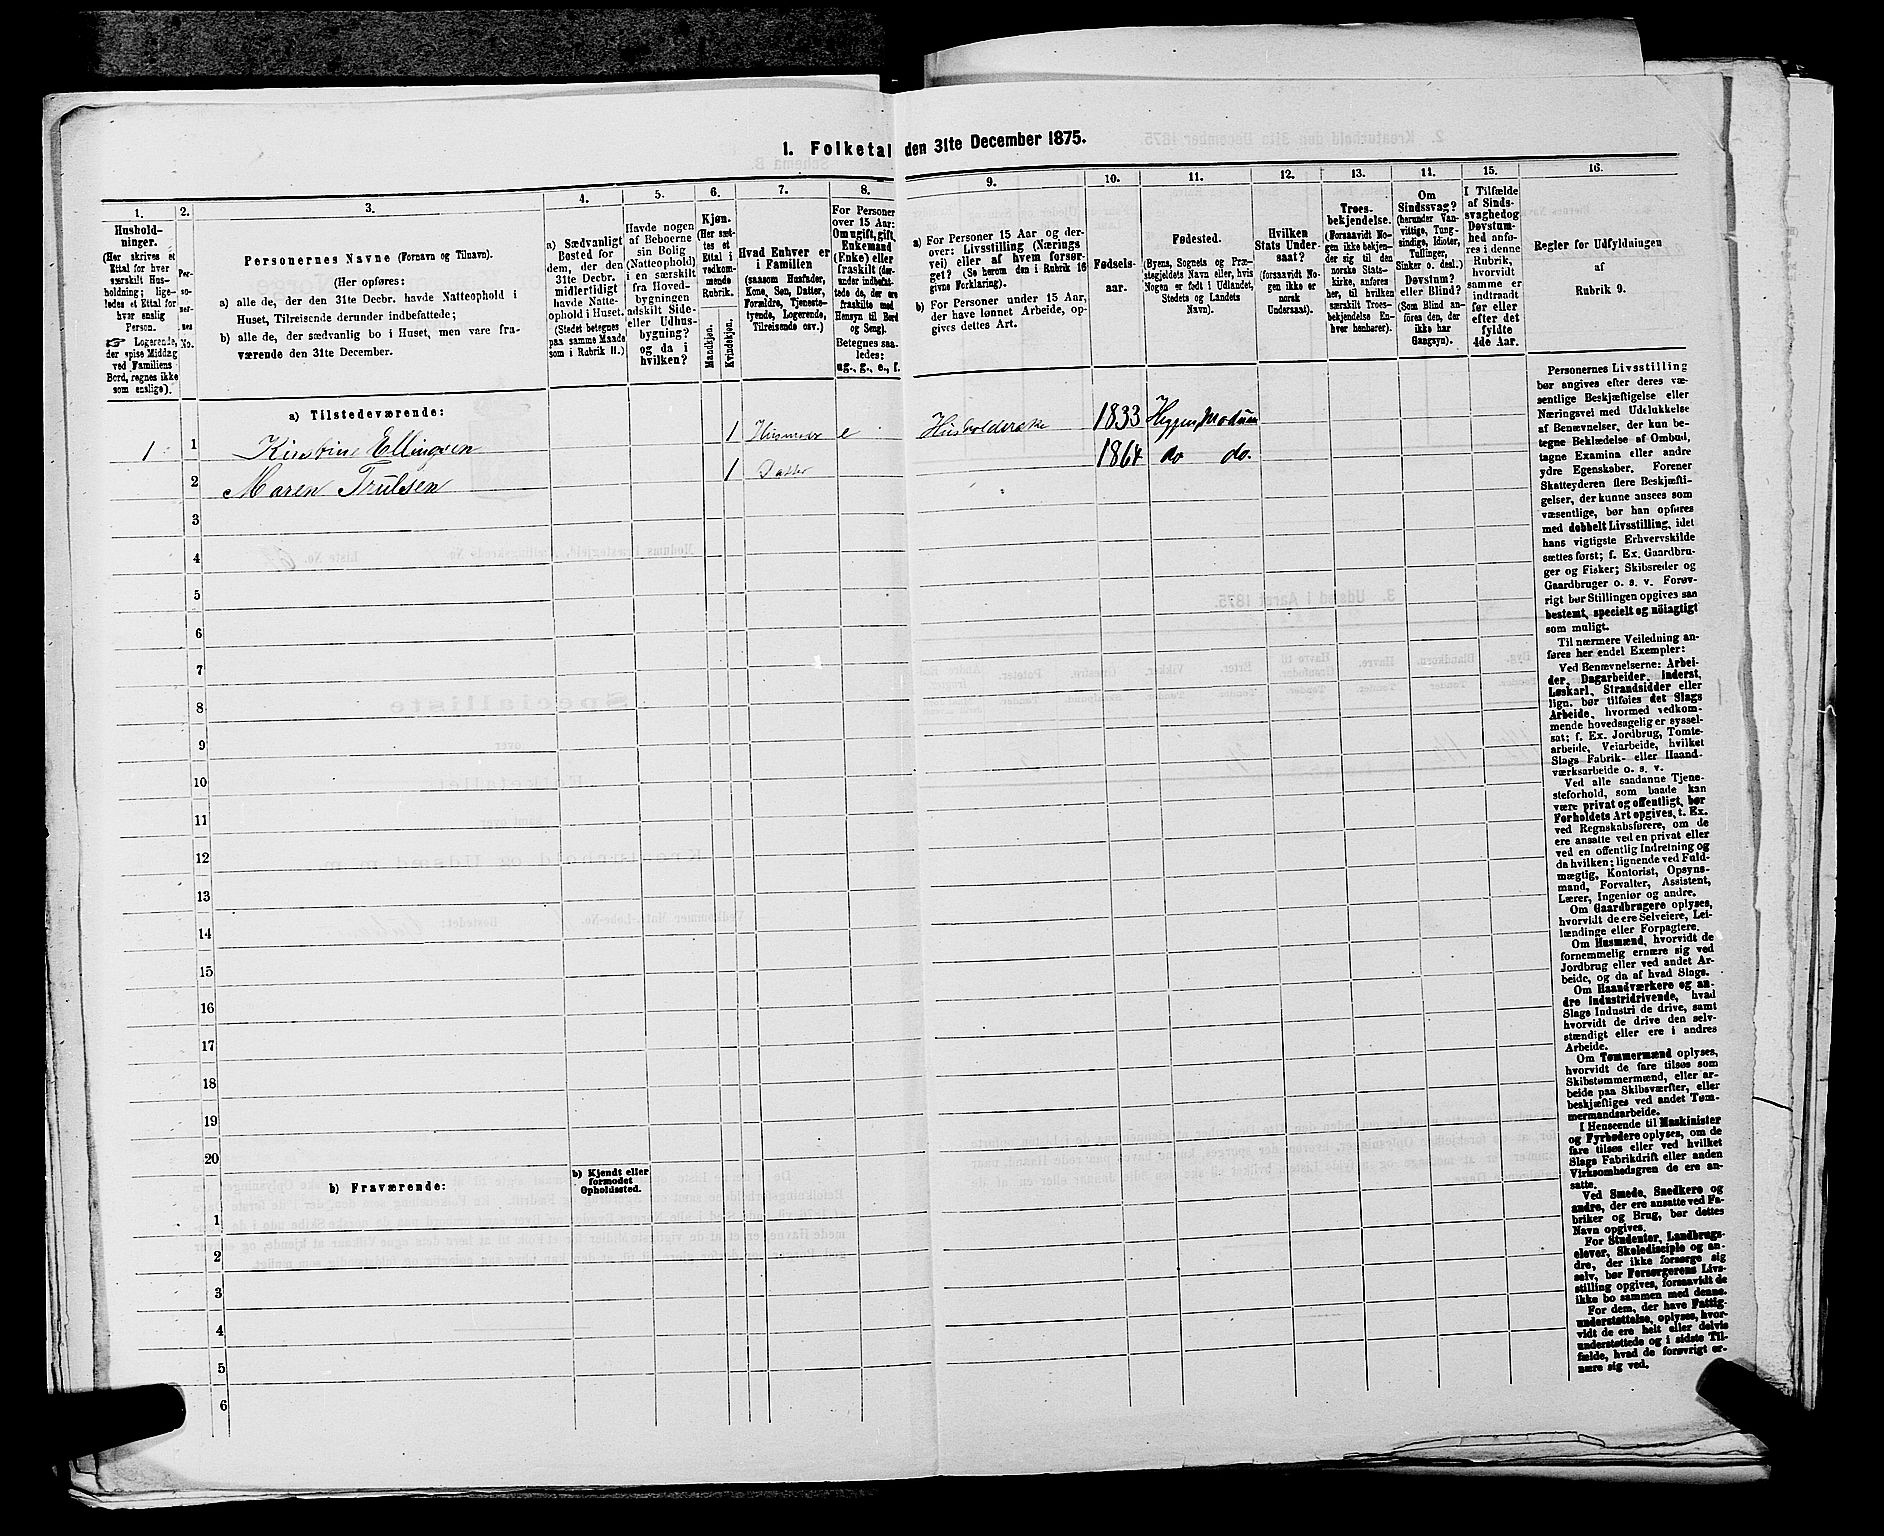 1. Folketal den 31te December 1875.
1.
2.
3.
4.
5.
6.
7.
8.
9.
10.
11.
12.
13.
14.
15.
16.
Hushold-
ninger.
(Her skrives et
Ettal for hver
særskilt Hus-
holdning; lige-
ledes et Ettal for
hver enslig
Person.
☞ Logerende,
der spise Middag
ved Familiens
Bord, regnes ikke
som enslige).
Per-
so-
ner-
nes
No.
Personernes Navne (Fornavn og Tilnavn).
(Her opføres:
a) alle de, der den 31te Decbr. havde Natteophold i
Huset, Tilreisende derunder indbefattede;
b) alle de, der sædvanlig bo i Huset, men vare fra-
værende den 31te December.
a) Sædvanligt
Bosted for
dem, der den
31te Decbr.
midlertidigt
havde Natte-
ophold i Huset.
(Stedet betegnes
paa samme Maade
som i Rubrik 11.)
Havde nogen
af Beboerne
sin Bolig
(Natteophold)
i en særskilt
fra Hoved-
bygningen
adskilt Side-
eller Udhus-
bygning?
og da i
hvilken?
Kjøn.
(Her sæt-
tes et
Ettal i
vedkom-
mende
Rubrik.
Mandkjøn.
Kvindekjøn.
Hvad Enhver er
i Familien
(saasom Husfader,
Kone, Søn, Datter,
Forældre, Tjeneste-
tyende, Logerende,
Tilreisende osv.)
For Personer
over 15 Aar:
Om ugift, gift,
Enkemand
(Enke) eller
fraskilt (der-
under indbefat-
tede de, der ere
fraskilte med
Hensyn til Bord
og Seng).
Betegnes saa-
ledes:
ug., g., e., f.
a) For Personer 15 Aar og der-
over: Livsstilling (Nærings
vei) eller af hvem forsør-
get? (Se herom den i Rubrik 16
givne Forklaring).
b) For Personer under 15 Aar,
der have lønnet Arbeide, op-
gives dettes Art.
Fødsels-
aar.
Fødested.
(Byens, Sognets og Præ-
stegjeldets Navn eller, hvis
Nogen er født i Udlandet,
Stedets og Landets
Navn).
Hvilken
Stats Under-
saat?
(forsaavidt No-
gen ikke er
norsk
Undersaat).
Troes-
bekjendelse.
(Forsaavidt No-
gen ikke bekjen-
der sig til den
norske Stats-
kirke, anføres
her, til hvilken
særskilt Troes-
bekjendelse En-
hver henhører).
Om
Sindssvag?
(herunder Van-
vittige, Tung-
sindige, Idioter,
Tullinger,
Sinker o. desl.)
Døvstum?
eller Blind?
(Som Blind an-
føres den, der
ikke har
Gangsyn).
I Tilfælde
af Sinds-
svaghed og
Døvstum-
hed anfø-
res i denne
Rubrik,
hvorvidt
samme er
indtraadt
før eller
efter det
fyldte
4de Aar.
Regler for Udfyldningen
af
Rubrik 9.
a) Tilstedeværende:
1 1 Kirstine Ellingsen 1 Husmoer e Husholderske 1833 Heggen, Modum
2 Maren Trulsen 1 Datter 1864 do do.
3
4
5
6
7
8
9
10
11
12
13
14
15
16
17
18
19
20
b) Fraværende:
b) Kjendt eller
formodet
Opholdssted.
1
2
3
4
5
6
Personernes Livsstilling
bør angives efter deres væ-
sentlige Beskjæftigelse eller
Næringsvei med Udelukkelse
af Benævnelser, der kun be-
tegne Beklædelse af Ombud,
tagne Examina eller andre
ydre Egenskaber. Forener
Skatteyderen flere Beskjæfti-
gelser, der kunne ansees som
væsentlige, bør han opføres
med dobbelt Livsstilling, idet
hans vigtigste Erhvervskilde
sættes først; f. Ex. Gaardbru-
ger og Fisker; Skibsreder og
Gaardbruger o. s. v. Forøv-
rigt bør Stillingen opgives saa
bestemt, specielt og nöiagtigt
som muligt.
Til nærmere Veiledning an-
føres her endel Exempler:
Ved Benævnelserne: Arbei-
der, Dagarbeider, Inderst,
Løskarl, Strandsidder eller
lign. bør tilføies det Slags
Arbeide, hvormed vedkom-
mende hovedsagelig er syssel-
sat; f. Ex. Jordbrug, Tomte-
arbeide, Veiarbeide, hvilket
Slags Fabrik- eller Haand-
værksarbeide o. s. v.
Ved alle saadanne Tjene-
steforhold, som baade kan
være privat og offentligt, bør
Forholdets Art opgives, t. Ex.
ved Regnskabsførere, om de
ere ansatte ved en privat eller
ved en offentlig Indretning og
da hvilken; lignende ved Fuld-
mægtig, Kontorist, Opsyns-
mand, Forvalter, Assistent,
Lærer, Ingeniør og andre.
Om Gaardbrugere oplyses,
hvorvidt de ere Selveiere, Lei-
lændinge eller Forpagtere.
Om Husmænd, hvorvidt de
fornemmelig ernære sig ved
Jordbrug eller ved andet Ar-
beide, og da af hvad Slags.
Om Haandværkere og an-
dre Industridrivende, hvad
Slags Industri de drive, samt
hvorvidt de drive den selv-
stændigt eller ere i andres
Arbeide.
Om Tømmermænd oplyses,
hvorvidt de fare tilsøs som
Skibstømmermænd, eller ar-
beide paa Skibsværfter, eller
beskjæftiges ved andet Tøm-
mermandsarbeide.
I Henseende til Maskinister
og Fyrbødere oplyses, om de
fare tilsøs eller ved hvilket
Slags Fabrikdrift eller anden
Virksomhedsgren de ere an-
satte.
Ved Smede, Snedkere og
andre, der ere ansatte ved Fa-
briker og Brug, bør dettes
Navn opgives.
For Studenter, Landbrugs-
elever, Skoledisciple og an-
dre, der ikke forsørge sig
selv, bør Forsørgerens Livs-
stilling opgives, forsaavidt de
ikke bo sammen med denne.
For dem, der have Fattig-
understøttelse, oplyses, hvor-
vidt de ere helt eller delvis
understøttede og i sidste Til-
fælde, hvad de forøvrigt er-
nære sig ved.